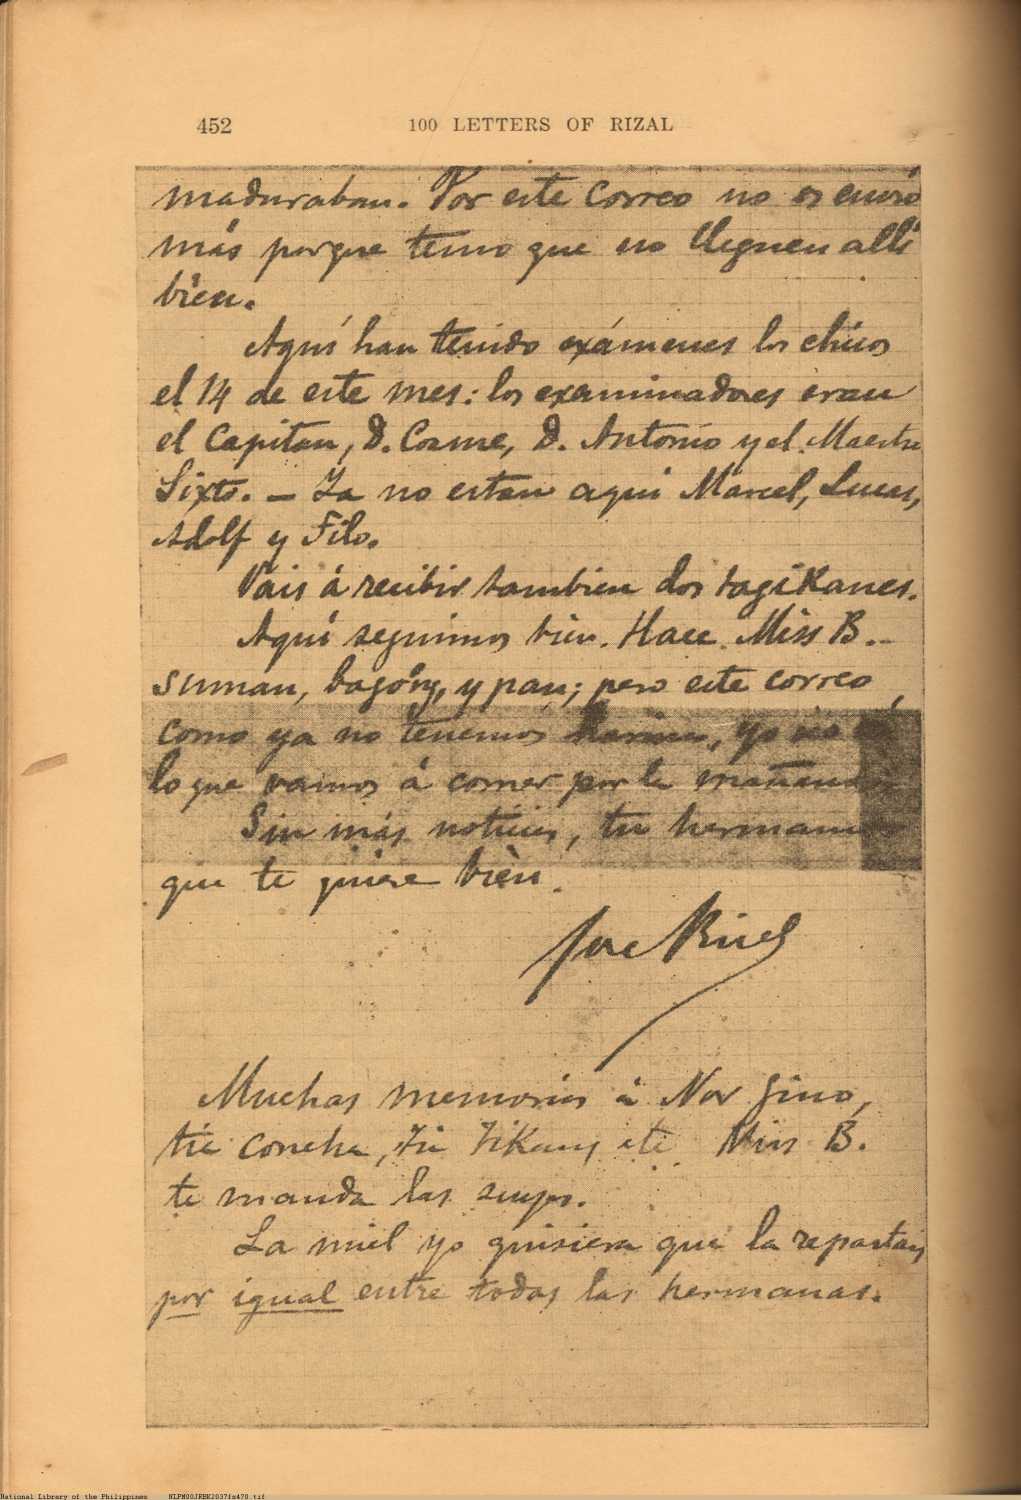 452 100 LETTERS OF RIZAL
maduraban. Por este correo no os envio
más porque temo que no lleguen alli
bien.
Aquí han tenido exámenes los chicos
el 14 de este mes: los examinadores eran
el Capitan, D. Cosme, D. Antonio y el Maestro
Sixto. — Ya no estan aqui Marcel, Lucas,
Adolf y Filo.
Vais á recibir tambien dos tagikanes.
Aquí seguimos bien. Hace Miss B.
suman, bagóng, y pan; pero este correo,
como ya no tenemos harina, yo no sé
lo que vamos á comer por la mañana
Sin más noticias, tu hermano
que te quiere bien.
José Rizal
Muchas memorias á Nor Gino,
tia Concha, Tia Tikang etc Miss B.
te manda las suyas.
La miel yo quisiera que la repartais
por igual entre todas las hermanas.
National Library of the Philippines